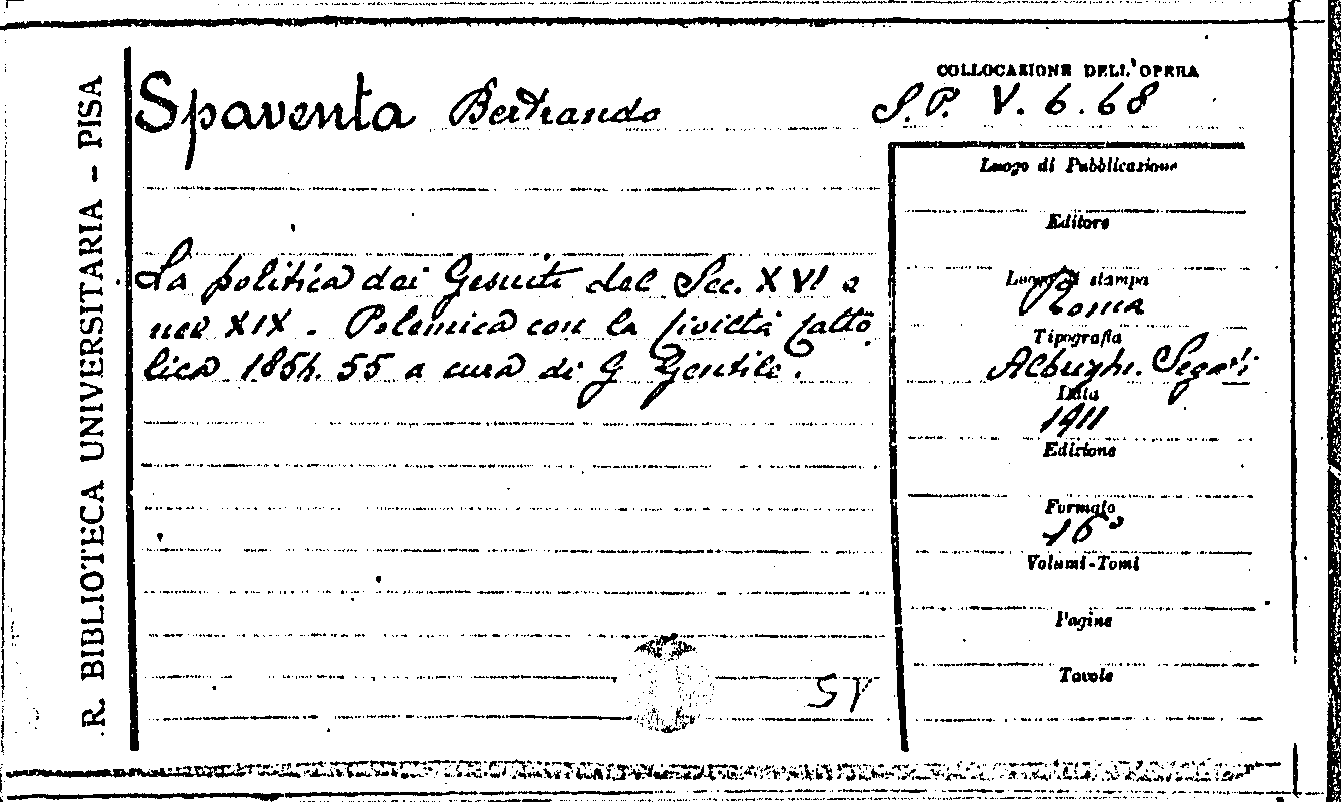 R. BIBLIOTECA UNIVERSITARIA - PISA
Spaventa Bertrando
La politica dei Gesuiti del Sec. XVI e
nel XIX. Polemica con la Civiltà Catto
lica 1854. 55 a cura di G Gentile.
COLLOCAZIONE DELL'OPERA
S.P. V. 6.68
Luogo di Pubblicazione
Editore
Luogo di stampa
Roma
Tipografia
Albrighi. Segati
Data
1911
Edizione
Formato
16°
Volumi-Tomi
Pagine
Tavole